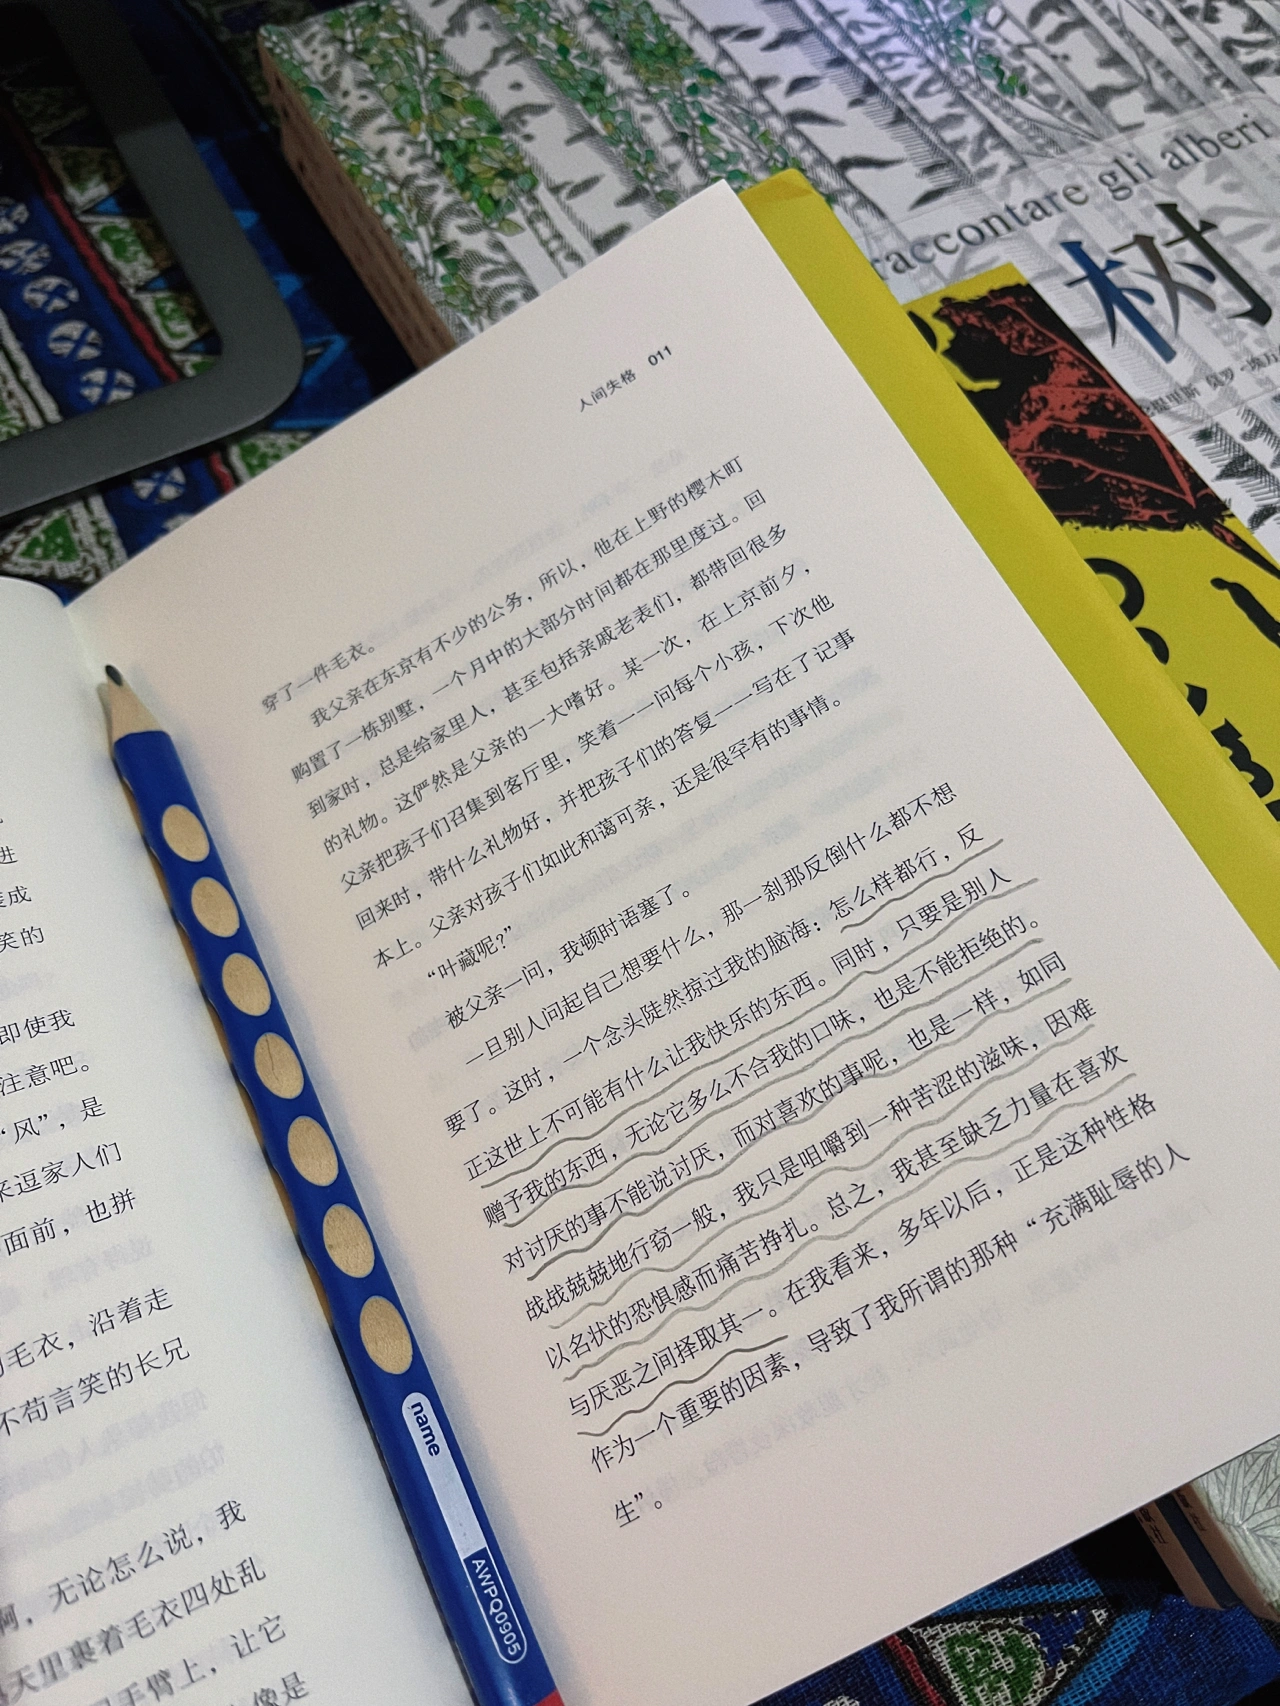 raccontare gli alberi
树
人间失格 011
穿了一件毛衣。
我父亲在东京有不少的公务，所以，他在上野的樱木町
购置了一栋别墅，一个月中的大部分时间都在那里度过。回
到家时，总是给家里人，甚至包括亲戚老表们，都带回很多
的礼物。这俨然是父亲的一大嗜好。某一次，在上京前夕，
父亲把孩子们召集到客厅里，笑着一一问每个小孩，下次他
回来时，带什么礼物好，并把孩子们的答复一一写在了记事
本上。父亲对孩子们如此和蔼可亲，还是很罕有的事情。
“叶藏呢？”
被父亲一问，我顿时语塞了。
一旦别人问起自己想要什么，那一刹那反倒什么都不想
要了。这时，一个念头陡然掠过我的脑海：怎么样都行，反
正这世上不可能有什么让我快乐的东西。同时，只要是别人
赠予我的东西，无论它多么不合我的口味，也是不能拒绝的。
对讨厌的事不能说讨厌，而对喜欢的事呢，也是一样，如同
战战兢兢地行窃一般，我只是咀嚼到一种苦涩的滋味，因难
以名状的恐惧感而痛苦挣扎。总之，我甚至缺乏力量在喜欢
与厌恶之间择取其一。在我看来，多年以后，正是这种性格
作为一个重要的因素，导致了我所谓的那种“充满耻辱的人
生”。
进
成
笑的
即使我
注意吧。
“风”，是
来逗家人们
面前，也拼
毛衣，沿着走
不苟言笑的长兄
啊，无论怎么说，我
天里裹着毛衣四处乱
手臂上，让它
像是
name
AWPQ0905